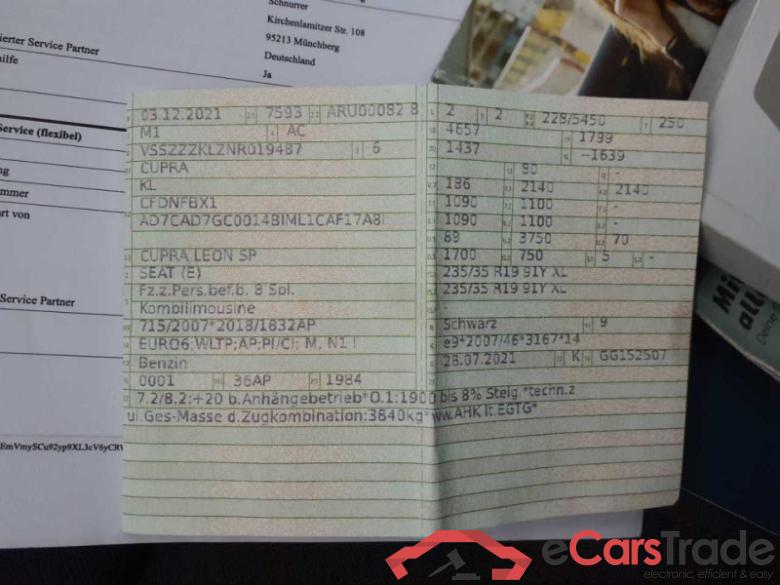 Schnurrer
Kirchenlamitzer Str. 108
95213 Münchberg
Deutschland
Ja
ierter Service Partner
hilfe
Service (flexibel)
ng
ummer
rt von
Service Partner
03.12.2021 7593 ARU00082 8
M1 AC
VSSZZZKLZNR019487 6
CUPRA
KL
CFDNFBX1
AD7CAD7GC0014BIML1CAF17A8I
CUPRA LEON SP
SEAT (E)
Fz.z.Pers.bef.b. 8 Spl.
Kombilimousine
715/2007*2018/1832AP
EURO6;WLTP;AP;PI/CI; M, N1 I
Benzin
0001 36AP 1984
7.2/8.2:+20 b.Anhängebetrieb*O.1:1900 bis 8% Steig.*techn.z
ul.Ges-Masse d.Zugkombination:3840kg*ww.AHK lt.EGTG*
2 2 228/5450 250
4657 1799
1437 -1639
80 -
186 2140 2140
1090 1100 -
1090 1100 -
89 3750 70
1700 750 5 -
235/35 R19 91Y XL
235/35 R19 91Y XL
-
Schwarz 9
e9*2007/46*3167*14
28.07.2021 K GG152507
Mit
all
Deine
eCarsTrade
electronic, efficient & easy